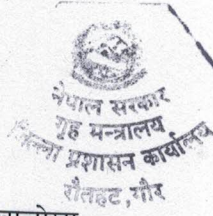 नेपाल सरकार
गृह मन्त्रालय
जिल्ला प्रशासन कार्यालय
रौतहट,गौर